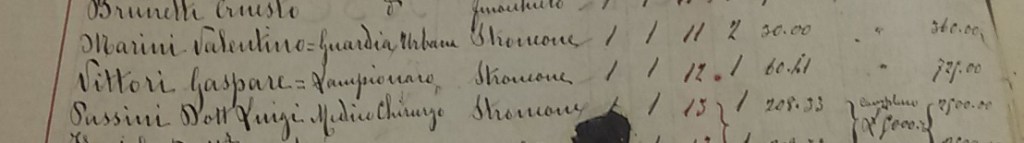 Brunelli Ernesto
Marini Valentino = Guardia Urbana Stroncone 1 1 11 2 30.00 " 360.00
Vittori Gaspare = Lampionaro Stroncone 1 1 12 1 60.41 " 725.00
Pussini Dott Luigi Medico Chirurgo Stroncone 1 1 13 1 208.33 2500.00